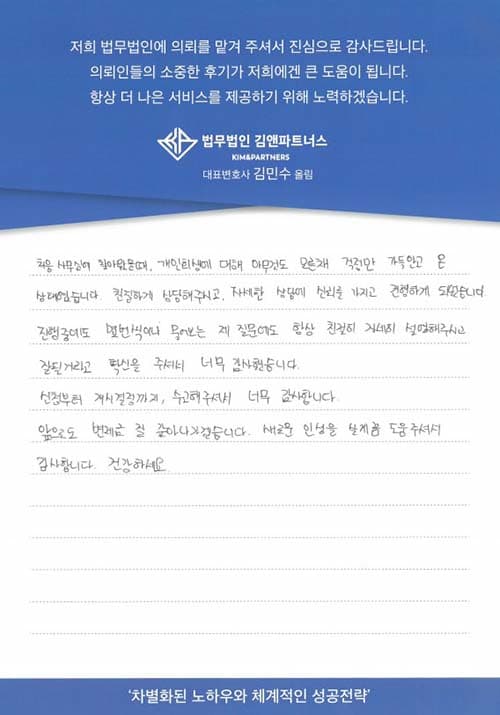 저희 법무법인에 의뢰를 맡겨 주셔서 진심으로 감사드립니다.
의뢰인들의 소중한 후기가 저희에겐 큰 도움이 됩니다.
항상 더 나은 서비스를 제공하기 위해 노력하겠습니다.
법무법인 김앤파트너스
KIM&PARTNERS
대표변호사 김민수 올림
처음 사무실에 찾아왔을때, 개인회생에 대해 아무것도 모른채 걱정만 가득안고 온
상태였습니다. 친절하게 상담해주시고, 자세한 상담에 신뢰를 가지고 진행하게 되었습니다.
진행중에도 몇번씩이나 물어보는 제 질문에도 항상 친절히 자세히 설명해주시고
잘될거라고 확신을 주셔서 너무 감사했습니다.
신청부터 개시결정까지, 수고해주셔서 너무 감사합니다.
앞으로도 변제금 잘 갚아나가겠습니다. 새로운 인생을 살게끔 도움주셔서
감사합니다. 건강하세요.
‘차별화된 노하우와 체계적인 성공전략’